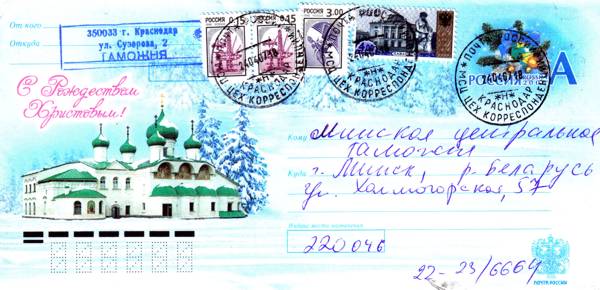 От кого
Откуда
350033 г. Краснодар
ул. Суворова, 2
ТАМОЖНЯ
РОССИЯ 0,15
РОССИЯ 0,15
РОССИЯ 3,00
4,00
ПОЧТА РОССИИ
КРАСНОДАР
МСЦ ЦЕХ КОРРЕСПОНДЕНЦИИ
КРАСНОДАР
А
РОССИЯ
С Рождеством
Христовым!
Кому Минская центральная
таможня
Куда г. Минск, р. Беларусь
ул. Холмогорская, 57
Индекс места назначения
220046
22-23/6669
ПОЧТА РОССИИ